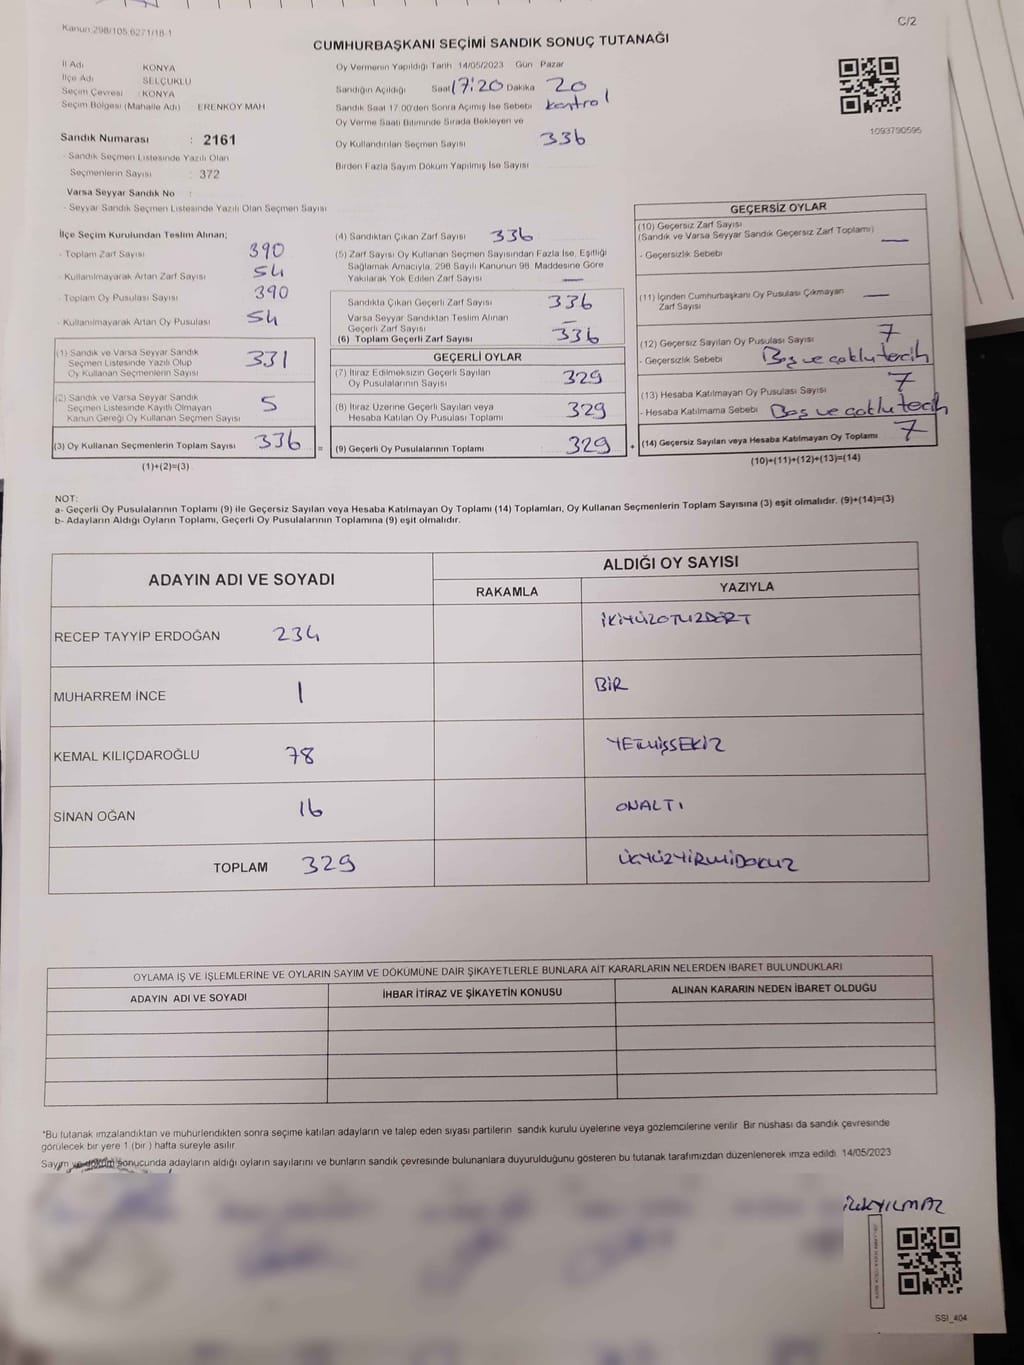 Kanun 298/105,6271/18-1
C/2
CUMHURBAŞKANI SEÇİMİ SANDIK SONUÇ TUTANAĞI
İl Adı KONYA
İlçe Adı SELÇUKLU
Seçim Çevresi : KONYA
Seçim Bölgesi (Mahalle Adı) : ERENKÖY MAH
Sandık Numarası : 2161
- Sandık Seçmen Listesinde Yazılı Olan
Seçmenlerin Sayısı : 372
Varsa Seyyar Sandık No :
- Seyyar Sandık Seçmen Listesinde Yazılı Olan Seçmen Sayısı
Oy Vermenin Yapıldığı Tarih 14/05/2023 Gün Pazar
Sandığın Açıldığı Saat 17:20 Dakika 20
Sandık Saat 17.00'den Sonra Açımış İse Sebebi kontrol
Oy Verme Saati Bitiminde Sırada Bekleyen ve
Oy Kullandırılan Seçmen Sayısı 336
Birden Fazla Sayım Döküm Yapılmış İse Sayısı
1093790595
İlçe Seçim Kurulundan Teslim Alınan;
- Toplam Zarf Sayısı 390
- Kullanılmayarak Artan Zarf Sayısı 54
- Toplam Oy Pusulası Sayısı 390
- Kullanılmayarak Artan Oy Pusulası 54
(1) Sandık ve Varsa Seyyar Sandık
Seçmen Listesinde Yazılı Olup
Oy Kullanan Seçmenlerin Sayısı 331
(2) Sandık ve Varsa Seyyar Sandık
Seçmen Listesinde Kayıtlı Olmayan
Kanun Gereği Oy Kullanan Seçmen Sayısı 5
(3) Oy Kullanan Seçmenlerin Toplam Sayısı 336 =
(1)+(2)=(3)
(4) Sandıktan Çıkan Zarf Sayısı 336
(5) Zarf Sayısı Oy Kullanan Seçmen Sayısından Fazla İse, Eşitliği
Sağlamak Amacıyla, 298 Sayılı Kanunun 98. Maddesine Göre
Yakılarak Yok Edilen Zarf Sayısı —
Sandıkta Çıkan Geçerli Zarf Sayısı 336
Varsa Seyyar Sandıktan Teslim Alınan
Geçerli Zarf Sayısı —
(6) Toplam Geçerli Zarf Sayısı 336
GEÇERLİ OYLAR
(7) İtiraz Edilmeksizin Geçerli Sayılan
Oy Pusulalarının Sayısı 329
(8) İtiraz Üzerine Geçerli Sayılan veya
Hesaba Katılan Oy Pusulası Toplamı 329
(9) Geçerli Oy Pusulalarının Toplamı 329 +
GEÇERSİZ OYLAR
(10) Geçersiz Zarf Sayısı
(Sandık ve Varsa Seyyar Sandık Geçersiz Zarf Toplamı) —
- Geçersizlik Sebebi
(11) İçinden Cumhurbaşkanı Oy Pusulası Çıkmayan
Zarf Sayısı —
(12) Geçersiz Sayılan Oy Pusulası Sayısı 7
- Geçersizlik Sebebi Boş ve çoklu tercih
(13) Hesaba Katılmayan Oy Pusulası Sayısı 7
- Hesaba Katılmama Sebebi Boş ve çoklu tercih
(14) Geçersiz Sayılan veya Hesaba Katılmayan Oy Toplamı 7
(10)+(11)+(12)+(13)=(14)
NOT:
a- Geçerli Oy Pusulalarının Toplamı (9) ile Geçersiz Sayılan veya Hesaba Katılmayan Oy Toplamı (14) Toplamları, Oy Kullanan Seçmenlerin Toplam Sayısına (3) eşit olmalıdır. (9)+(14)=(3)
b- Adayların Aldığı Oyların Toplamı, Geçerli Oy Pusulalarının Toplamına (9) eşit olmalıdır.
ADAYIN ADI VE SOYADI
ALDIĞI OY SAYISI
RAKAMLA YAZIYLA
RECEP TAYYİP ERDOĞAN 234 İKİYÜZOTUZDÖRT
MUHARREM İNCE 1 BİR
KEMAL KILIÇDAROĞLU 78 YETMİŞSEKİZ
SİNAN OĞAN 16 ONALTI
TOPLAM 329 ÜÇYÜZYİRMİDOKUZ
OYLAMA İŞ VE İŞLEMLERİNE VE OYLARIN SAYIM VE DÖKÜMÜNE DAİR ŞİKAYETLERLE BUNLARA AİT KARARLARIN NELERDEN İBARET BULUNDUKLARI
ADAYIN ADI VE SOYADI İHBAR İTİRAZ VE ŞİKAYETİN KONUSU ALINAN KARARIN NEDEN İBARET OLDUĞU
*Bu tutanak imzalandıktan ve mühürlendikten sonra seçime katılan adayların ve talep eden siyasi partilerin sandık kurulu üyelerine veya gözlemcilerine verilir Bir nüshası da sandık çevresinde
görülecek bir yere 1 (bir ) hafta süreyle asılır.
Sayım ve döküm sonucunda adayların aldığı oyların sayılarını ve bunların sandık çevresinde bulunanlara duyurulduğunu gösteren bu tutanak tarafımızdan düzenlenerek imza edildi. 14/05/2023
YILMAZ
SSI_404